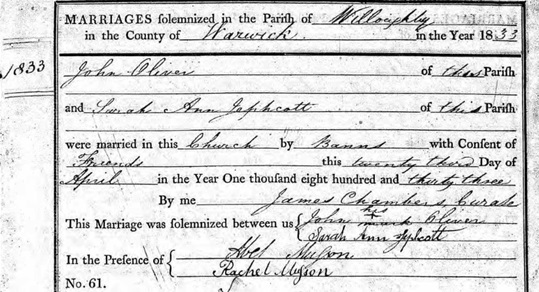 MARRIAGES solemnized in the Parish of Willoughby
in the County of Warwick in the Year 1833
1833
John Oliver of this Parish
and Sarah Ann Japhcott of this Parish
were married in this Church by Banns with Consent of
Friends this twenty third Day of
April in the Year One thousand eight hundred and thirty three
By me James Chambers, Curate
This Marriage was solemnized between us { John his x mark Oliver
Sarah Ann Japhcott
In the Presence of { Abel Myson
Rachel Myson
No. 61.